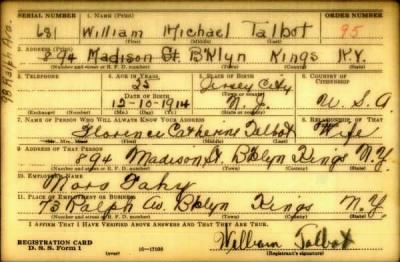 SERIAL NUMBER 1. NAME (Print) ORDER NUMBER
681 William Michael Talbot 95
(First) (Middle) (Last)
2. ADDRESS (Print)
894 Madison St. B'klyn Kings N.Y.
(Number and street or R. F. D. number) (Town) (County) (State)
3. TELEPHONE 4. AGE IN YEARS 5. PLACE OF BIRTH 6. COUNTRY OF CITIZENSHIP
25 Jersey City
DATE OF BIRTH (Town or county)
12-10-1914 N.J. U.S.A
(Exchange) (No.) (Mo.) (Day) (Yr.) (State or country)
7. NAME OF PERSON WHO WILL ALWAYS KNOW YOUR ADDRESS 8. RELATIONSHIP OF THAT PERSON
Florence Catherine Talbot Wife
(Mr., Mrs., Miss) (First) (Middle) (Last)
9. ADDRESS OF THAT PERSON
894 Madison St. Bklyn Kings N.Y.
(Number and street or R. F. D. number) (Town) (County) (State)
10. EMPLOYER'S NAME
Fahy
11. PLACE OF EMPLOYMENT OR BUSINESS
73 Ralph Av. Bklyn Kings N.Y.
(Number and street or R. F. D. number) (Town) (County) (State)
I AFFIRM THAT I HAVE VERIFIED ABOVE ANSWERS AND THAT THEY ARE TRUE.
REGISTRATION CARD
D. S. S. Form 1 (over) 16-17105 William Talbot
(Registrant's signature)